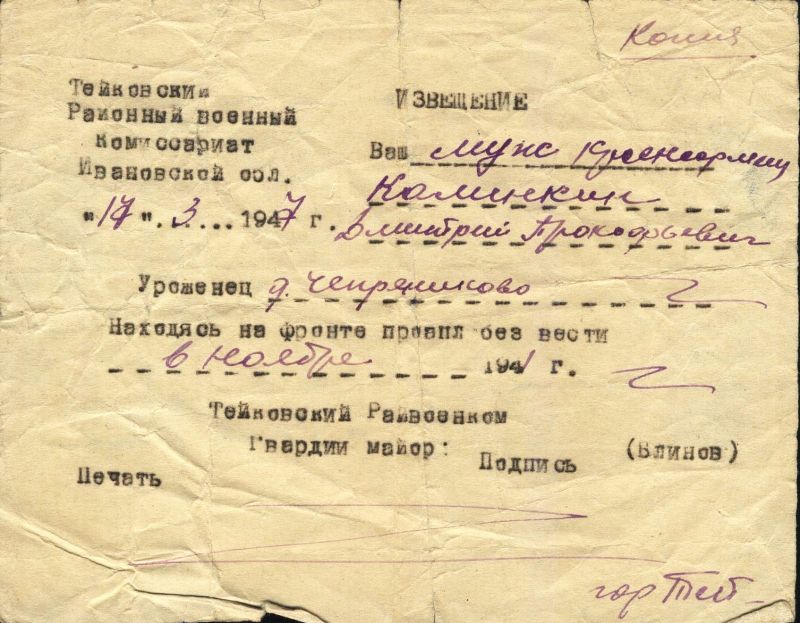 Копия
Тейковский
Районный военный
Комиссариат
Ивановской обл.
"17". 3 ... 1947 г.
ИЗВЕЩЕНИЕ
Ваш муж красноармеец
Калинкин
Дмитрий Прокофьевич
Уроженец д. Чепряниково
Находясь на фронте пропал без вести
в ноябре 1941 г.
Тейковский Райвоенком
Гвардии майор: Подпись (Блинов)
Печать
гор Тей